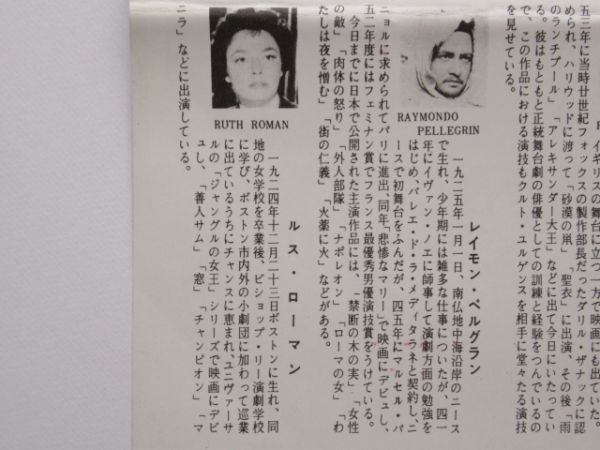 イギリスの舞台に立つ一方で映画にも出ていた。
五三年に当時廿世紀フォックスの製作部長だったダリル・ザナックに認
められ、ハリウッドに渡って「砂漠の鼡」「聖衣」に出演、その後「雨
のランチプール」「アレキサンダー大王」などに出て今日にいたってい
る。彼はもともと正統舞台劇の俳優としての訓練と経験をつんでいるの
で、この作品における演技もクルト・ユルゲンスを相手に堂々たる演技
を見せている。
RAYMONDO
PELLEGRIN
レイモン・ペルグラン
一九二五年一月一日、南仏地中海沿岸のニース
で生れ、少年期には雑多な仕事についたが、四一
年にイヴァン・ノエに師事して演劇方面の勉強を
はじめ、パレエ・ド・ラ・メディタラネと契約し、ニ
ースで初舞台をふんだが、四五年にマルセル・パ
ニョルに求められてパリに進出、同年「悲惨なマリー」で映画にデビュし、
五二年度にはフェミナン賞でフランス最優秀男優演技賞をうけている。
今日までに日本で公開された主演作品には、「禁断の木の実」「女性
の敵」「肉体の怒り」「外人部隊」「ナポレオン」「ローマの女」「わ
たしは夜を憎む」「街の仁義」「火薬に火」などがある。
RUTH ROMAN
ルス・ローマン
一九二四年十二月二十三日ボストンに生れ、同
地の女学校を卒業後、ビショップ・リー演劇学校
に学び、ボストン市内外の小劇団に加わって巡業
に出ているうちにチャンスに恵まれ、ユニヴァーサ
ルの「ジャングルの女王」シリーズで映画にデビ
ュし、「善人サム」「窓」「チャンピオン」「マ
ニラ」などに出演している。